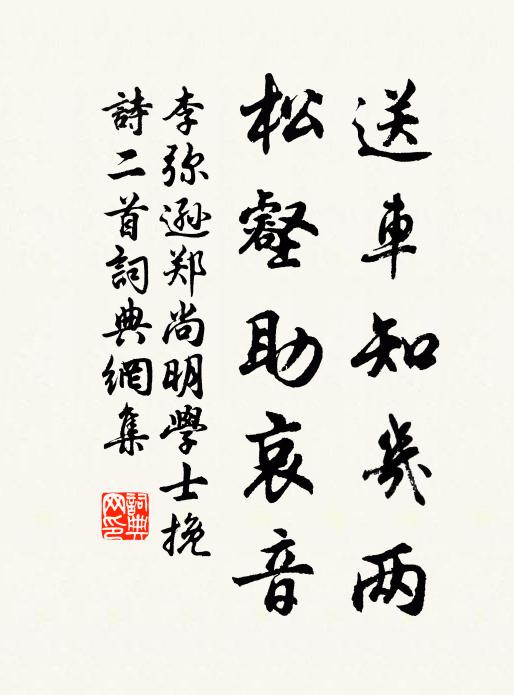 送車知幾两
松壑助哀音
李弥遜郑尚明學士挽
詩二首詞典網集
詞典
网印